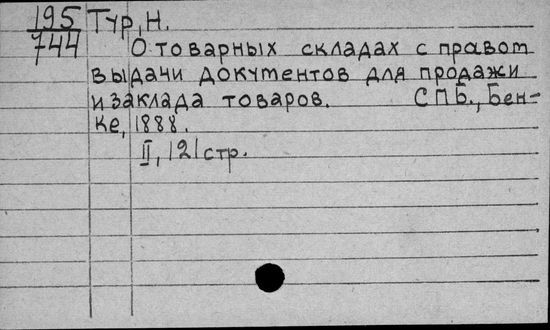 195 Тур, Н.
744 О товарных складах с правом
выдачи документов для продажи
и заклада товаров. СПБ., Бен-
ке, 1888.
II, 121 стр.